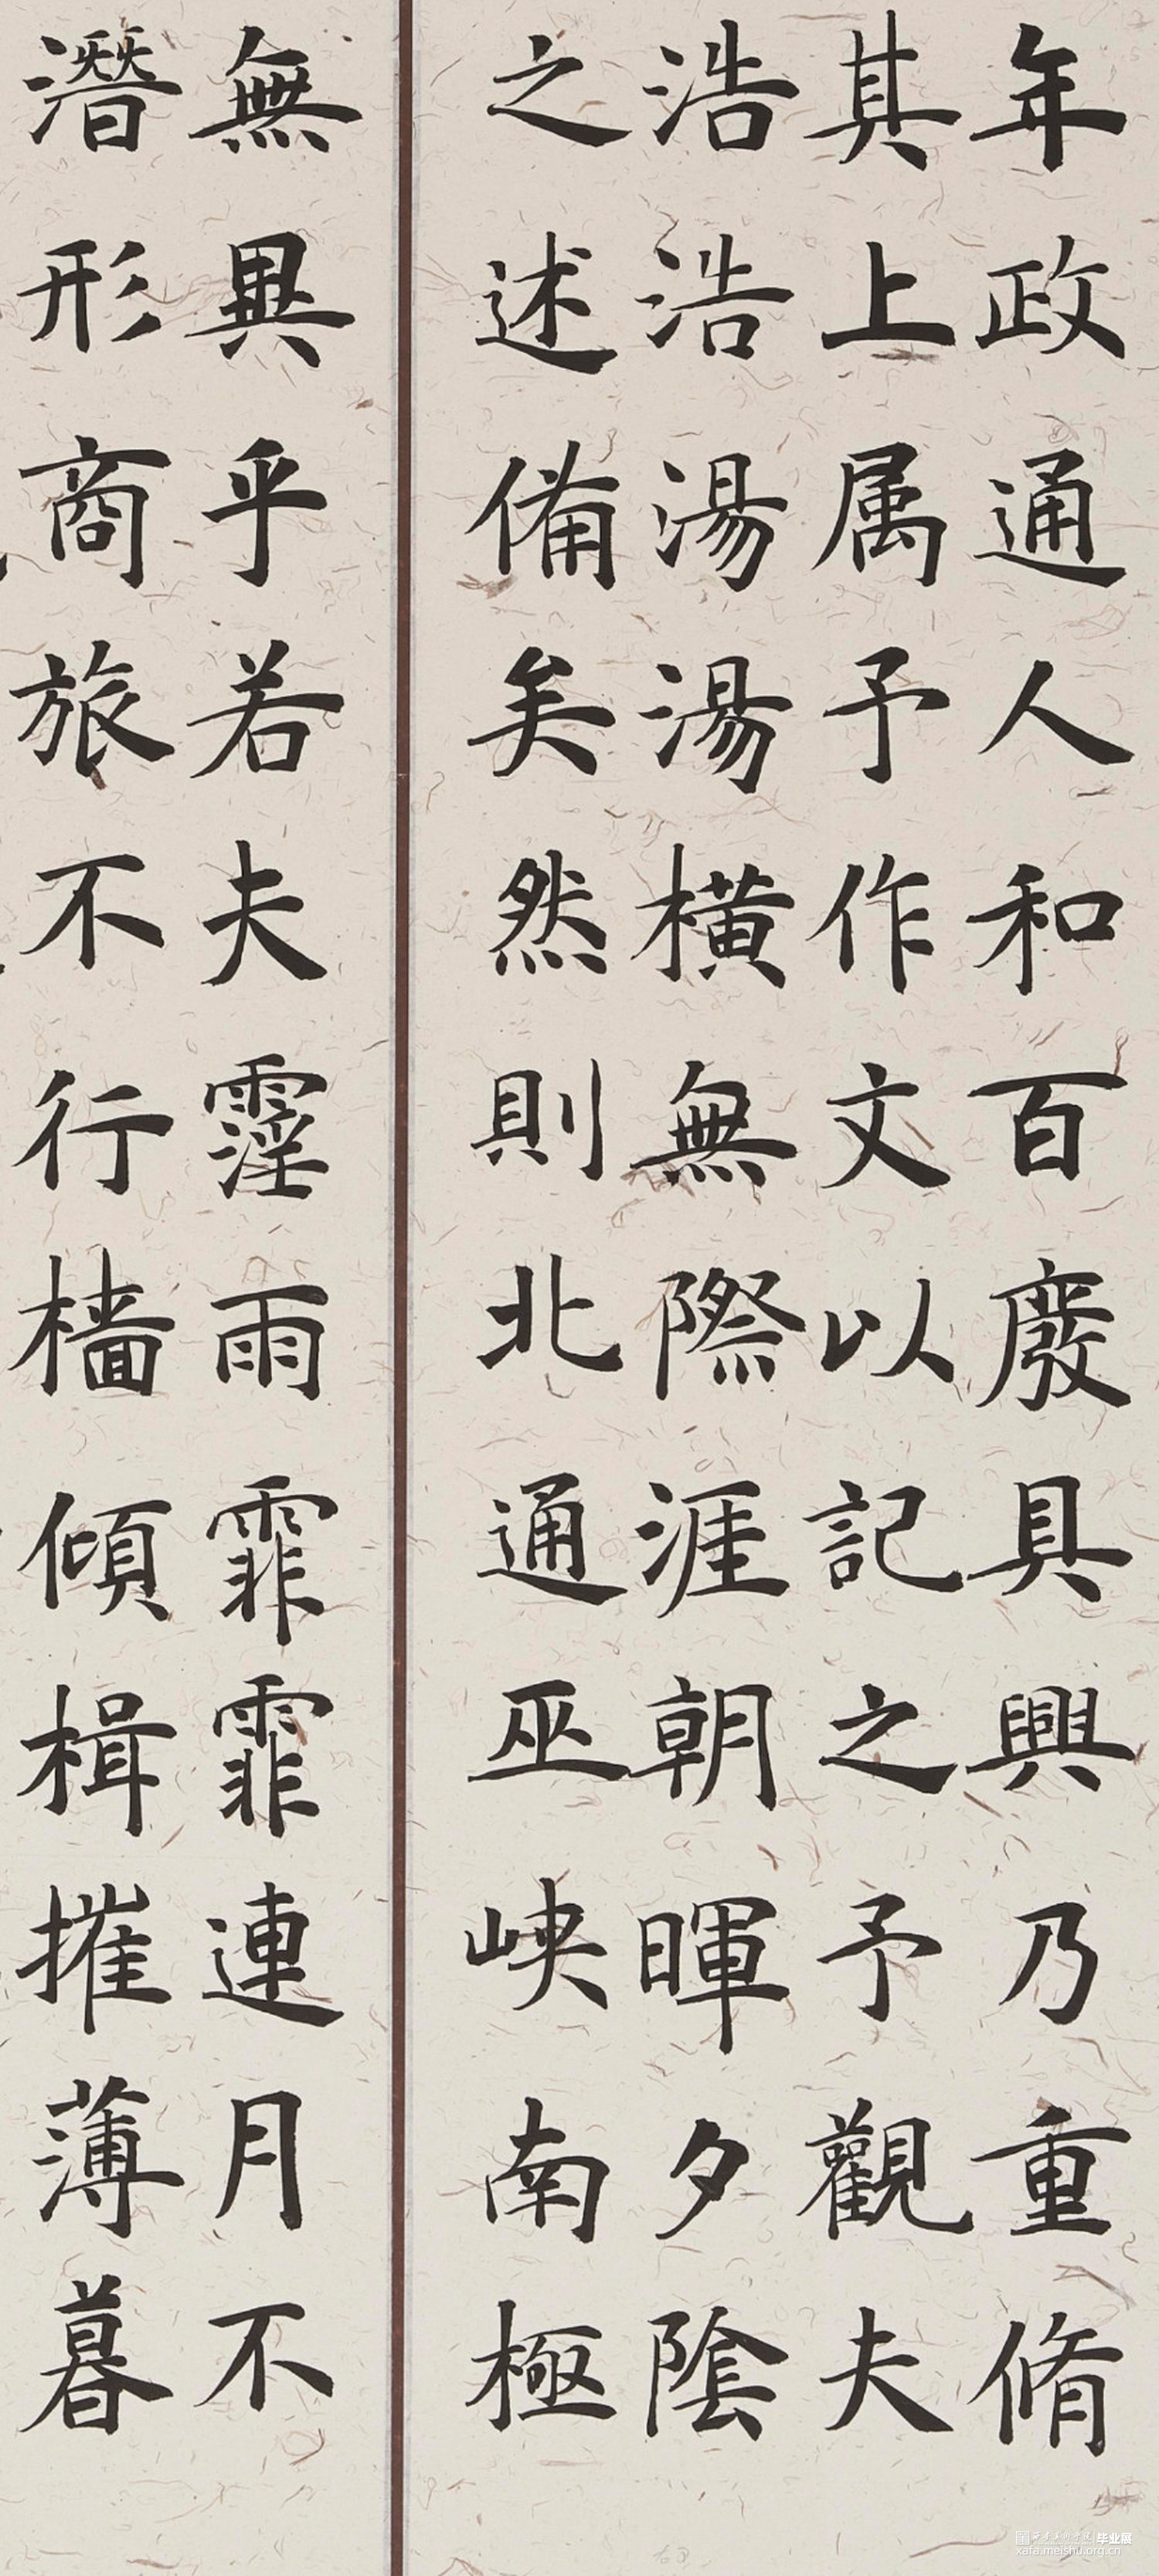 年政通人和百廢具興乃重脩
其上属予作文以記之予觀夫
浩浩湯湯橫無際涯朝暉夕陰
之述備矣然則北通巫峽南極
無異乎若夫霪雨霏霏連月不
潛形商旅不行檣傾楫摧薄暮
毕业展
xafa.meishu.org.cn